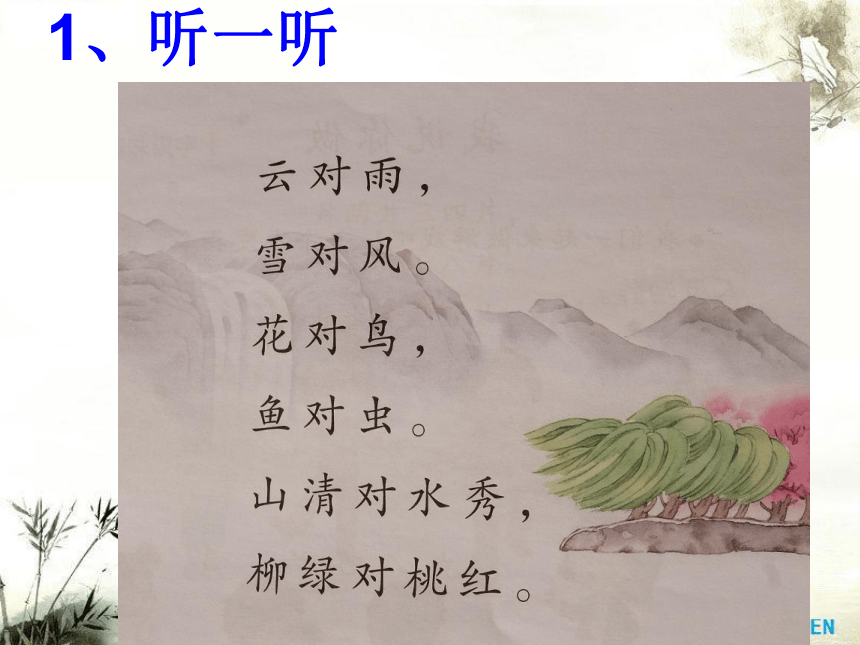 1、听一听
云对雨，
雪对风。
花对鸟，
鱼对虫。
山清对水秀，
柳绿对桃红。
EN